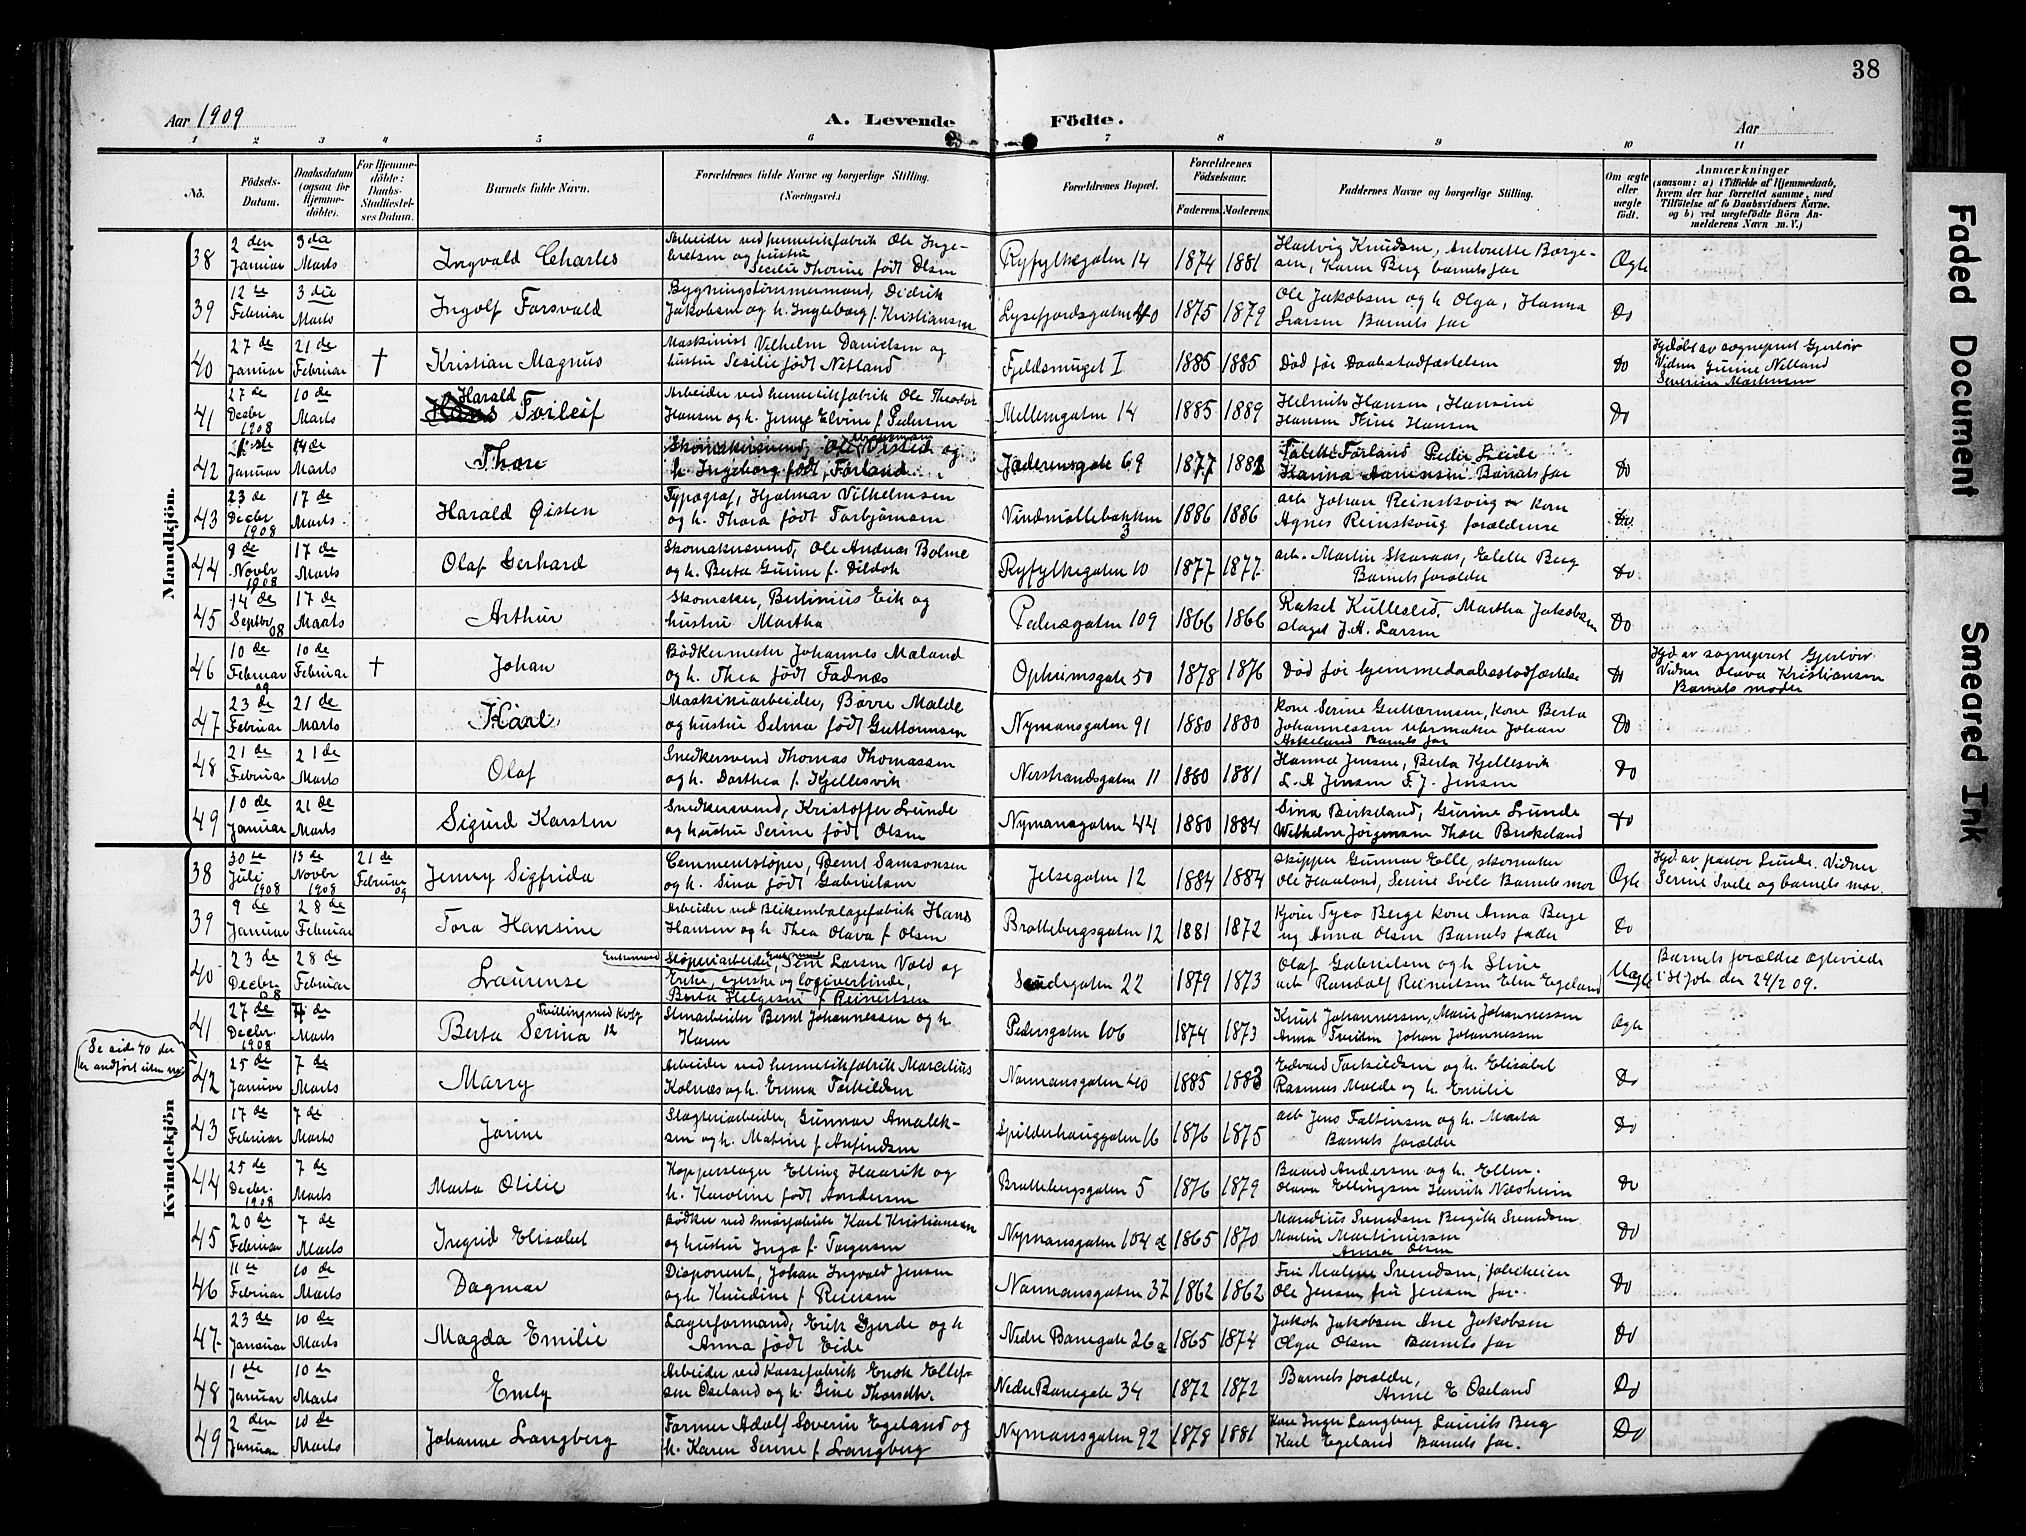 38
Aar 1909
A. Levende
Födte.
Aar
1 2 3 4 5 6 7 8 9 10 11
No.
Födsels-
Datum.
Daabsdatum
(ogsaa for
Hjemme-
döbte).
For Hjemme-
döbte:
Daabs-
Stadfæstel-
ses Datum.
Barnets fulde Navn.
Forældrenes fulde Navne og borgerlige Stilling.
(Næringsvei.)
Forældrenes Bopæl.
Forældrenes
Födselsaar.
Faderens. Moderens.
Faddernes Navne og borgerlige Stilling.
Om ægte
eller
uægte
födt.
Anmærkninger
(saasom: a) i Tilfælde af Hjemmedaab,
hvem der har forrettet samme, med
Tilföielse af to Daabsvidners Navne,
og b) ved uægtefödte Börn An-
melderens Navn m. V.)
Mandkjön.
38 2den Januar 3die Marts Ingvald Charles
Arbeider ved hermetikfabrik Ole Inge-
bretsen og hustru
Secilie Thorine født Olsen
Ryfylkegaten 14 1874 1881
Hartvig Knudsen, Antonette Borge-
sen, Karen Berg barnets far
Ægte
39 12te Februar 3die Marts Ingolf Torsvald
Bygningstømmermand, Didrik
Jakobsen og h. Ingleborg f. Kristiansen
Lysefjordsgaten 40 1875 1879
Ole Jakobsen og h. Olga, Hanna
Larsen Barnets far
Do
40 27de Januar 21de Februar † Kristian Magnus
Maskinist Vilhelm Danielsen og
hustru Sesilie født Netland
Fjeldsmuget I 1885 1885
Død før Daabsstadfæstelsen
Do
Hjdøbt av sogneprest Gjerløv
Vidner Gurine Netland
Severine Martensen
41 27de Decbr 1908 10de Marts Harald Torleif
Arbeider ved hermetikfabrik Ole Theodor
Hansen og h. Jenny Elvine f. Pedersen
Mellemgaten 14 1885 1889
Helmik Hansen, Hansine
Hansen Trine Hansen
Do
42 Januar 14de Marts Thore
Skomakersvend, Ole Visted og
h. Ingeborg født Førland
Jæderensgate 69 1877 1882
Tabette Førland Peder Lende
Hanna Barnets far
Do
43 23de Decbr 1908 17de Marts Harald Øisten
Typograf, Hjalmar Vilhelmsen
og h. Thora født Torbjørnsen
Vindmøllebakken 3 1886 1886
arb Johan Reinskoug Kone
Agnes Reinskoug forældrene
Do
44 8de Novbr 1908 17de Marts Olaf Gerhard
Skomakersvend, Ole Andreas Bolme
og h. Berta Gurine f. Dildok
Ryfylkegaten 10 1877 1877
arb. Martin Skaraas, Elelle Berg
Barnets forældre
Do
45 14de Septbr 08 17de Marts Arthur
Skomaker, Bertinius Eik og
hustru Martha
Pedersgaten 109 1866 1866
Rakel Kulleseid, Martha Jakobsen
slagt J.A. Larsen
Do
46 10de Februar 09 10de Februar † Johan
Bødkermester Johannes Mæland
og h. Thea født Fadnæs
Opheimsgate 50 1878 1876
Død før hjemmedaabsstadfæstelse
Do
Hjd av sogneprest Gjerløv.
Vidner Olava Kristiansen
Barnets moder
47 23de Februar 21de Marts Karl
Maskinarbeider, Børre Malde
og hustru Selma født Guttormsen
Nymansgaten 91 1880 1880
Kone Serine Guttormsen, Kone Berta
Johannessen Uhrmaker Johan
Askeland Barnets far
Do
48 21de Februar 21de Marts Olaf
Snedkersvend Thomas Thomassen
og h. Dorthea f. Kjellesvik
Nerstrandsgaten 11 1880 1881
Hanna Jensen, Berta Kjellesvik
L. A Jensen F. J. Jensen
Do
49 10de Januar 21de Marts Sigurd Karsten
Snedkersvend, Kristoffer Lunde
og hustru Serine født Olsen
Nymansgaten 44 1880 1884
Sina Birkeland, Gurine Lunde
Wilhelm Jørgensen Thore Birkeland
Do
Kvindekjön
38 30te Juli 1908 15de Novbr 1908 21de Februar 09 Jenny Sigfrida
Cementstøper, Bernt Samsonsen
og h. Sina født Gabrielsen
Jelsegaten 12 1884 1884
Skipper Gunnar Elle, skomaker
Ole Haaland, Serine Svele Barnets mor
Ægte
Hjd. av pastor Lunde. Vidner
Serine Svele og barnets mor.
39 9de Januar 28de Februar Tora Hansine
Arbeider ved Blikemballagefabrik Hans
Hansen og h. Thea Olava f. Olsen
Brattebergsgaten 12 1881 1872
Kjører Tyco Berge kone Anna Berge
og Anna Olsen Barnets fader
Do
40 23de Decbr 08 28de Februar Laurense
Enkemand Støperiarbeider, Larsen Vold og
Enke, syerske og logivertinde,
Berta Helgesen f. Reinertsen
Suldegaten 22 1879 1873
Olaf Gabrielsen og h. Stine
arb Randolf Reinertsen Elen Egeland
Uægte
Barnets forældre ægteviede
i St Joh den 24/2 09.
41 27de Decbr 1908 7de Marts Berta Serina
Tvilling med Kvby 12
Stenarbeider Bernt Johannessen og h.
Karen
Pedersgaten 106 1874 1873
Knut Johannessen, Marie Johannessen
Anna Johan Johannessen
Ægte
Se side 40 der
er andført uten no:
42 25de Januar 7de Marts Marry
Arbeider ved hermetikfabrik Marcelius
Kolnæs og h. Emma Torkildsen
Normansgaten 40 1885 1883
Edvard Torkildsen og h. Elisabet
Rasmus Malde og h. Emilie
Do
43 17de Februar 7de Marts Jorine
Slagteriarbeider, Gunnar Amalek-
sen og h. Matine f. Arfindsen
Spilderhauggaten 16 1876 1875
arb Jens Faltinsen og h. Marta
Barnets forældre
Do
44 25de Decbr. 1908 7de Marts Marta Otilie
Kopperslager Elling Haarik og
h. Karoline født Andersen
Brattebergsgaten 5 1876 1879
Baard Andersen og h. Ellen.
Olava Ellingsen Henrik Nilsheim
Do
45 20de Februar 7de Marts Ingrid Elisabet
Bødker ved Smørfabrik Karl Kristiansen
og hustru Inga f. Torgersen
Nymansgaten 104 a 1865 1870
Mandius Svendsen Bergith Svendsen
Martin Martinussen
Anna Olsen
Do
46 11te Februar 10de Marts Dagmar
Disponent, Johan Ingvald Jensen
og h. Knudine f. Reiersen
Normansgaten 37 1862 1862
Fru Malene Svendsen, fabrikeier
Ole Jensen fru Jensen far.
Do
47 23de Januar 10de Marts Magda Emilie
Lagerformand, Erik Gjerde og h
Anna født Eide
Nedre Banegate 26a 1865 1874
Jakob Jakobsen Ane Jakobsen
Olga Olsen Barnets far
Do
48 1ste Januar 10de Marts Emely
Arbeider ved Kassefabrik Enok Ellef-
sen Øseland og h. Gine Thorsdtr.
Nedre Banegate 34 1872 1872
Barnets forældre,
Anne E Øseland
Do
49 2den Januar 10de Marts Johanne Langberg
Former Adolf Soverin Egeland og
h. Karen Serine f. Langberg
Nymansgaten 92 1878 1881
Kone Inger Langberg Laurits Berg
Karl Egeland Barnets far.
Do
Faded Document
Smeared Ink